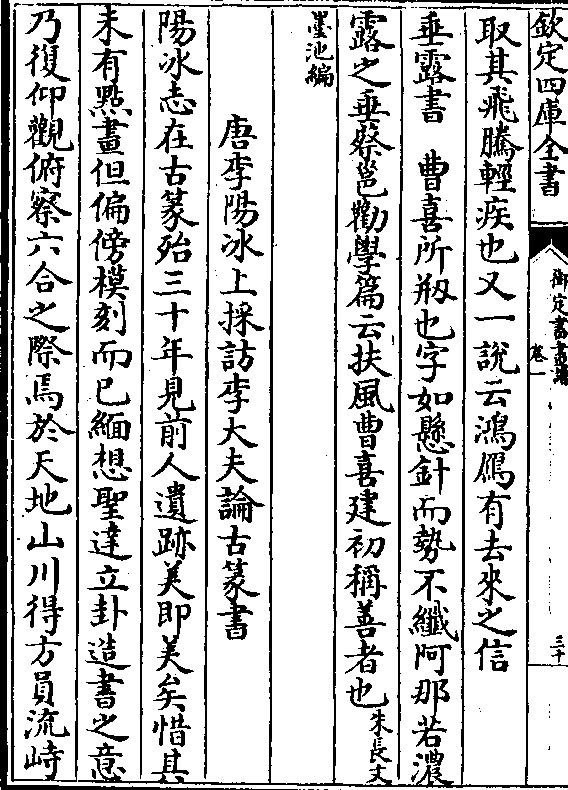 欽定四庫全書
御定書畫譜
卷一
三十
取其飛騰輕疾也又一說云鴻鴈有去來之信
垂露書　曹喜所刱也字如懸針而勢不纖阿那若濃
露之垂蔡邕勸學篇云扶風曹喜建初稱善者也朱長文
墨池編
唐李陽冰上採訪李大夫論古篆書
陽冰志在古篆殆三十年見前人遺跡美即美矣惜其
未有點畫但偏傍模刻而已緬想聖達立卦造書之意
乃復仰觀俯察六合之際焉於天地山川得方員流峙